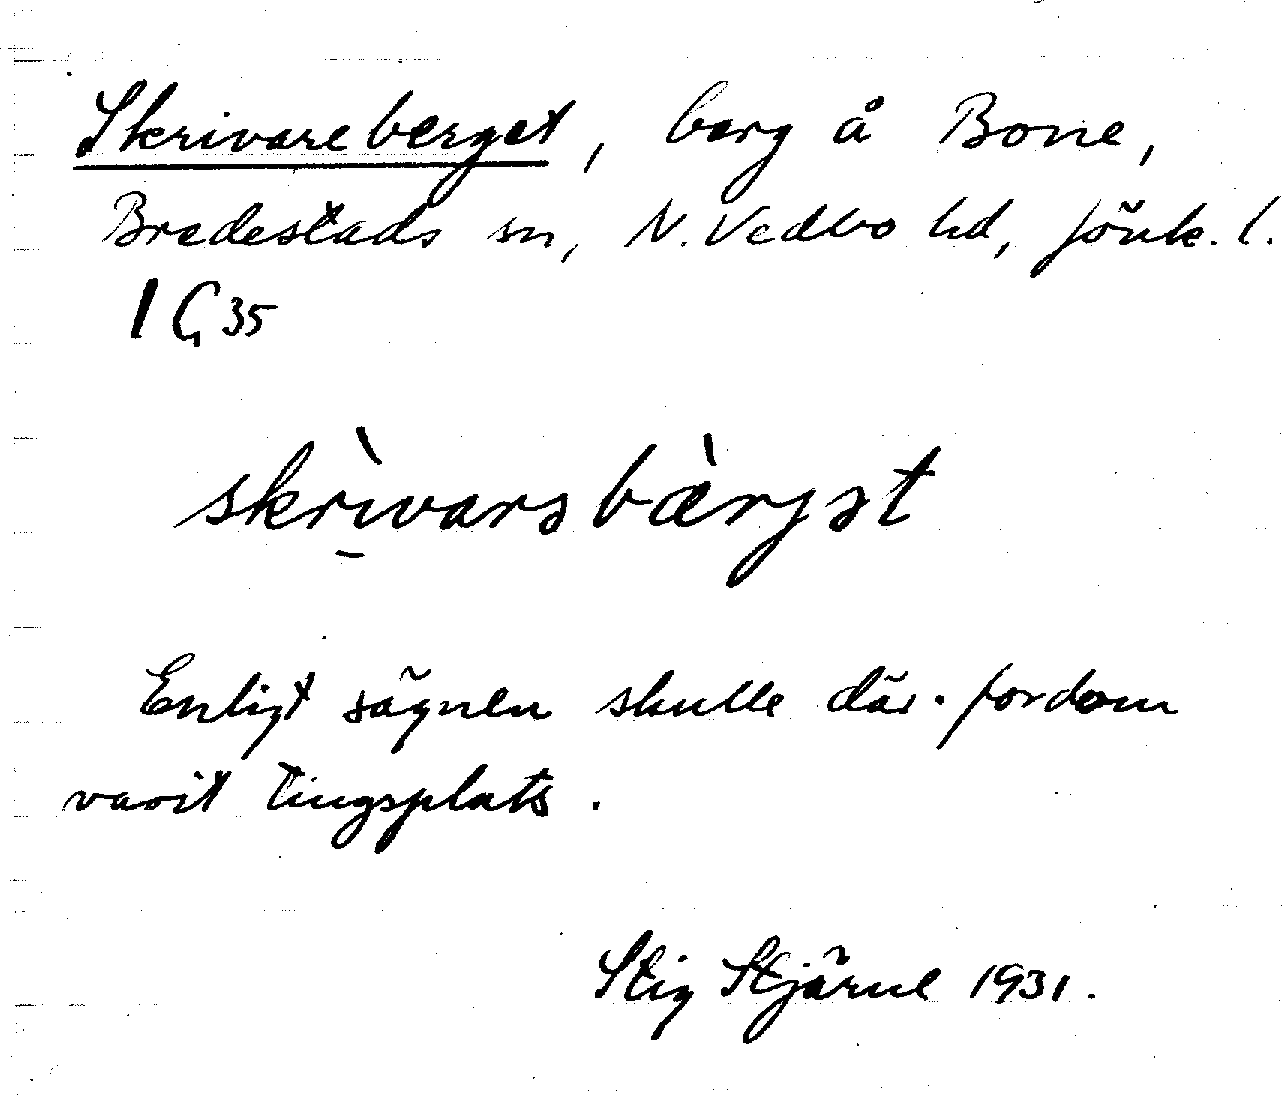 Skrivareberget, berg å Bone,
Bredestads sn, N. Vedbo hd, Jönk. l.
1 G 35
skrì̠varəbæ̀rjət
Enligt sägnen skulle där fordom
varit tingsplats.
Stig Stjärne 1931.